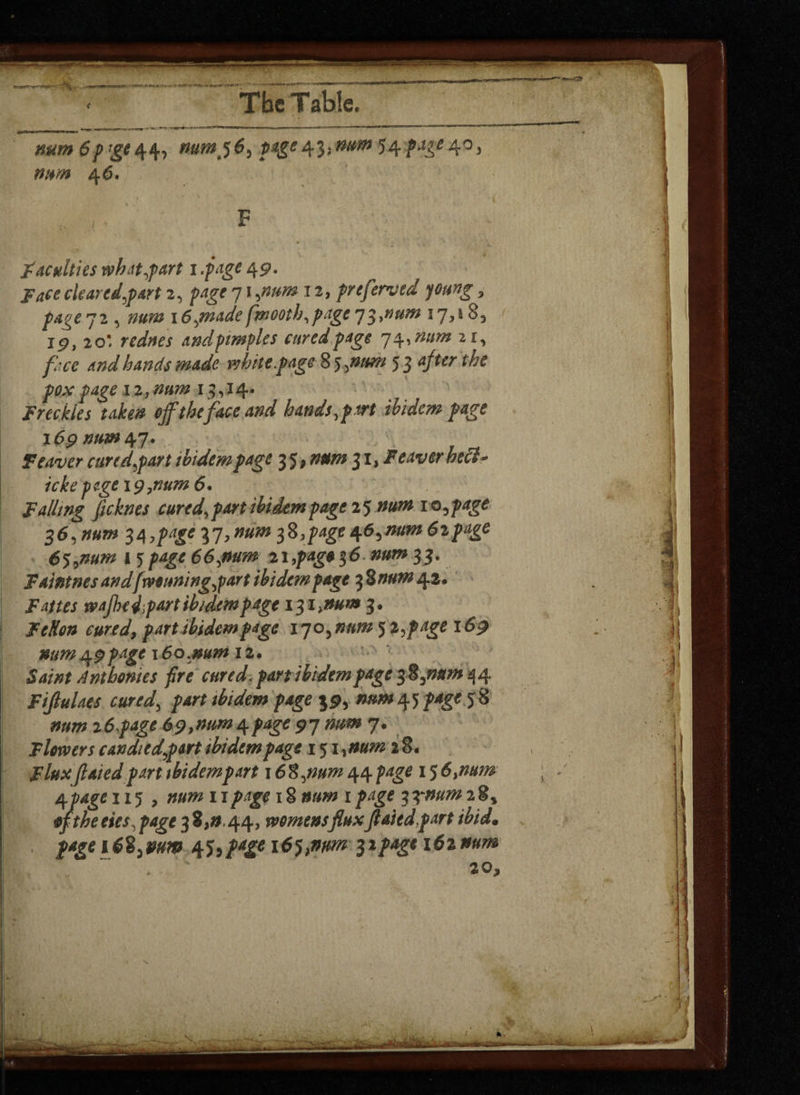 The Table.
num 6 page 44, num 56, page 43, num 54 page 40,
num 46.
F
Faculties what, part 1. page 49.
Face cleared, part 2, page 71, num 12, preſerved young,
page 72, num 16, made ſmooth, page 73, num 17, 18,
19, 20. rednes and pimples cured page 74, num 21,
face and hands made white. page 85, num 53 after the
pox page 12, num 13, 14.
Freckles taken off the face and hands, part ibidem page
169 num 47.
Feaver cured, part ibidem page 35, num 31, Feaver hect-
icke page 19, num 6.
Falling ſicknes cured, part ibidem page 25 num 10, page
36, num 34, page 37, num 38, page 46, num 62 page
65, num 15 page 66, num 21, page 36 num 33.
Faintnes and ſwouning, part ibidem page 38 num 42.
Fattes waſhed, part ibidem page 131, num 3.
Fellon cured, part ibidem page 170, num 52, page 169
num 49 page 160. num 12.
Saint Anthonies fire cured. part ibidem page 38, num 44
Fiſtulaes cured, part ibidem page 39, num 45 page 58
num 26. page 69, num 4 page 97 num 7.
Flowers candied, part ibidem page 151, num 28.
Flux ſtaied part ibidem part 168, num 44 page 156, num
4 page 115, num 11 page 18 num 1 page 33 num 28,
of the eies, page 38, n. 44, womens flux ſtaied, part ibid.
page 168, num 45, page 165, num 32 page 162 num
20,